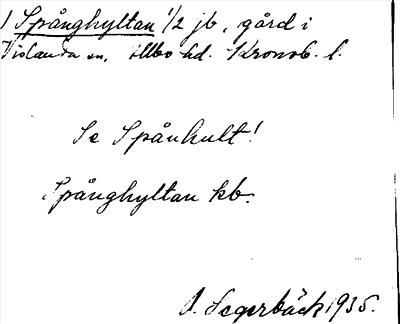 1 Spånghyltan 1/2 jb, gård i
Vislanda sn, Allbo hd. Kronob. l.
Se Spånhult!
Spånghyltan kb.
A. Segerbäck 1935.